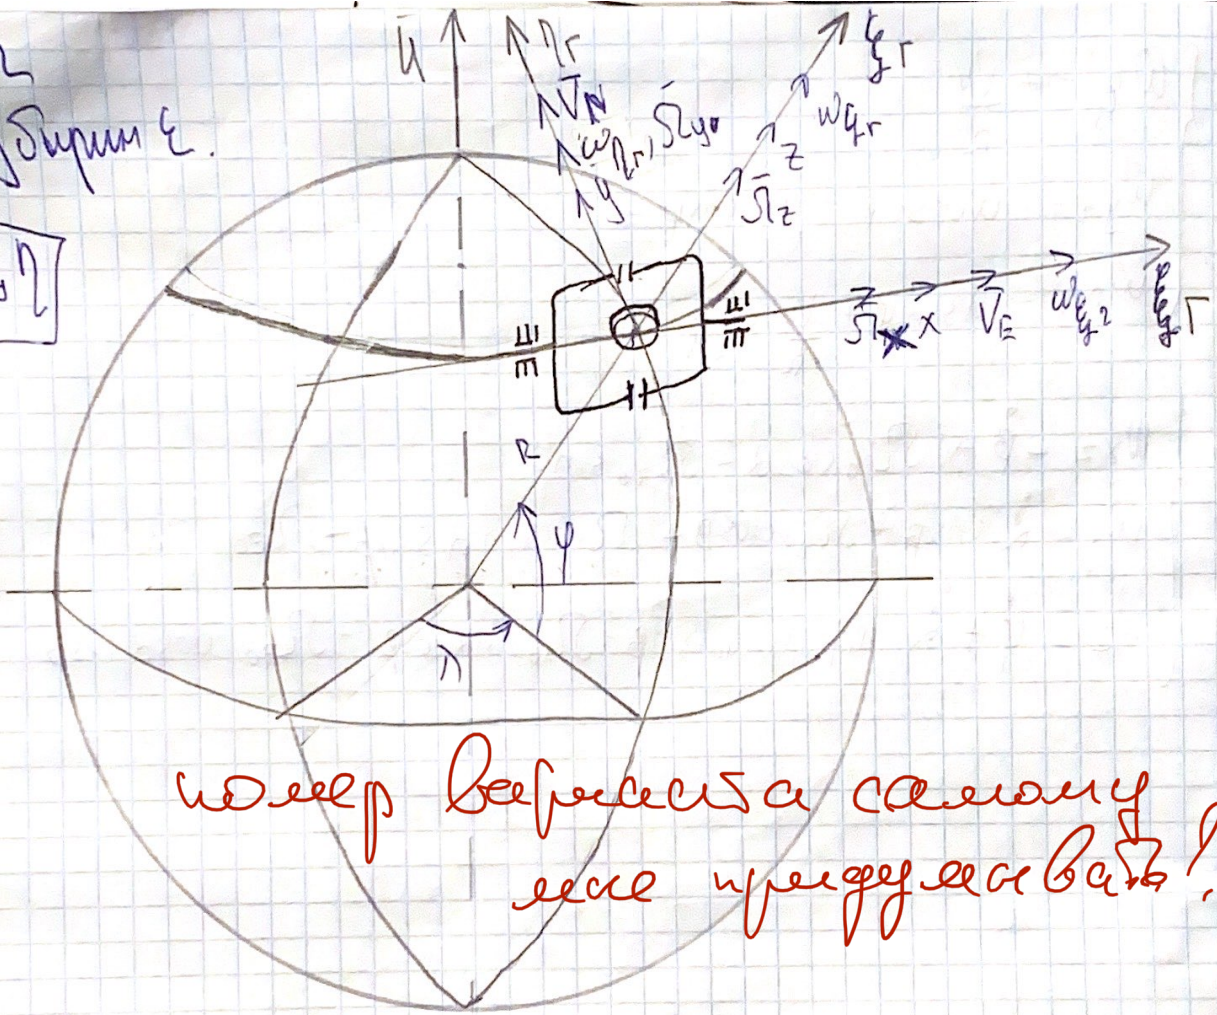 ū
ηг
V̄N
ω̄ηг, Ω̄y
y
ζг
ωζг
z
Ω̄z
Ω̄x
x
V̄E
ωξг
ξг
η
R
φ
λ
номер варианта самому
мне придумывать?